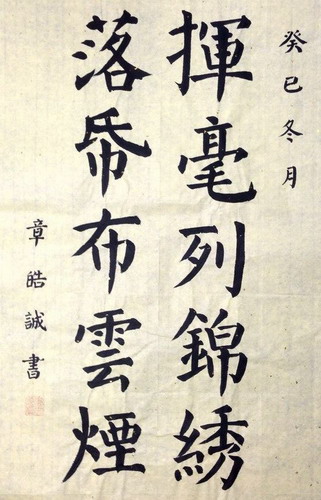 癸巳冬月
揮毫列錦綉
落帋布雲煙
章皓誠書